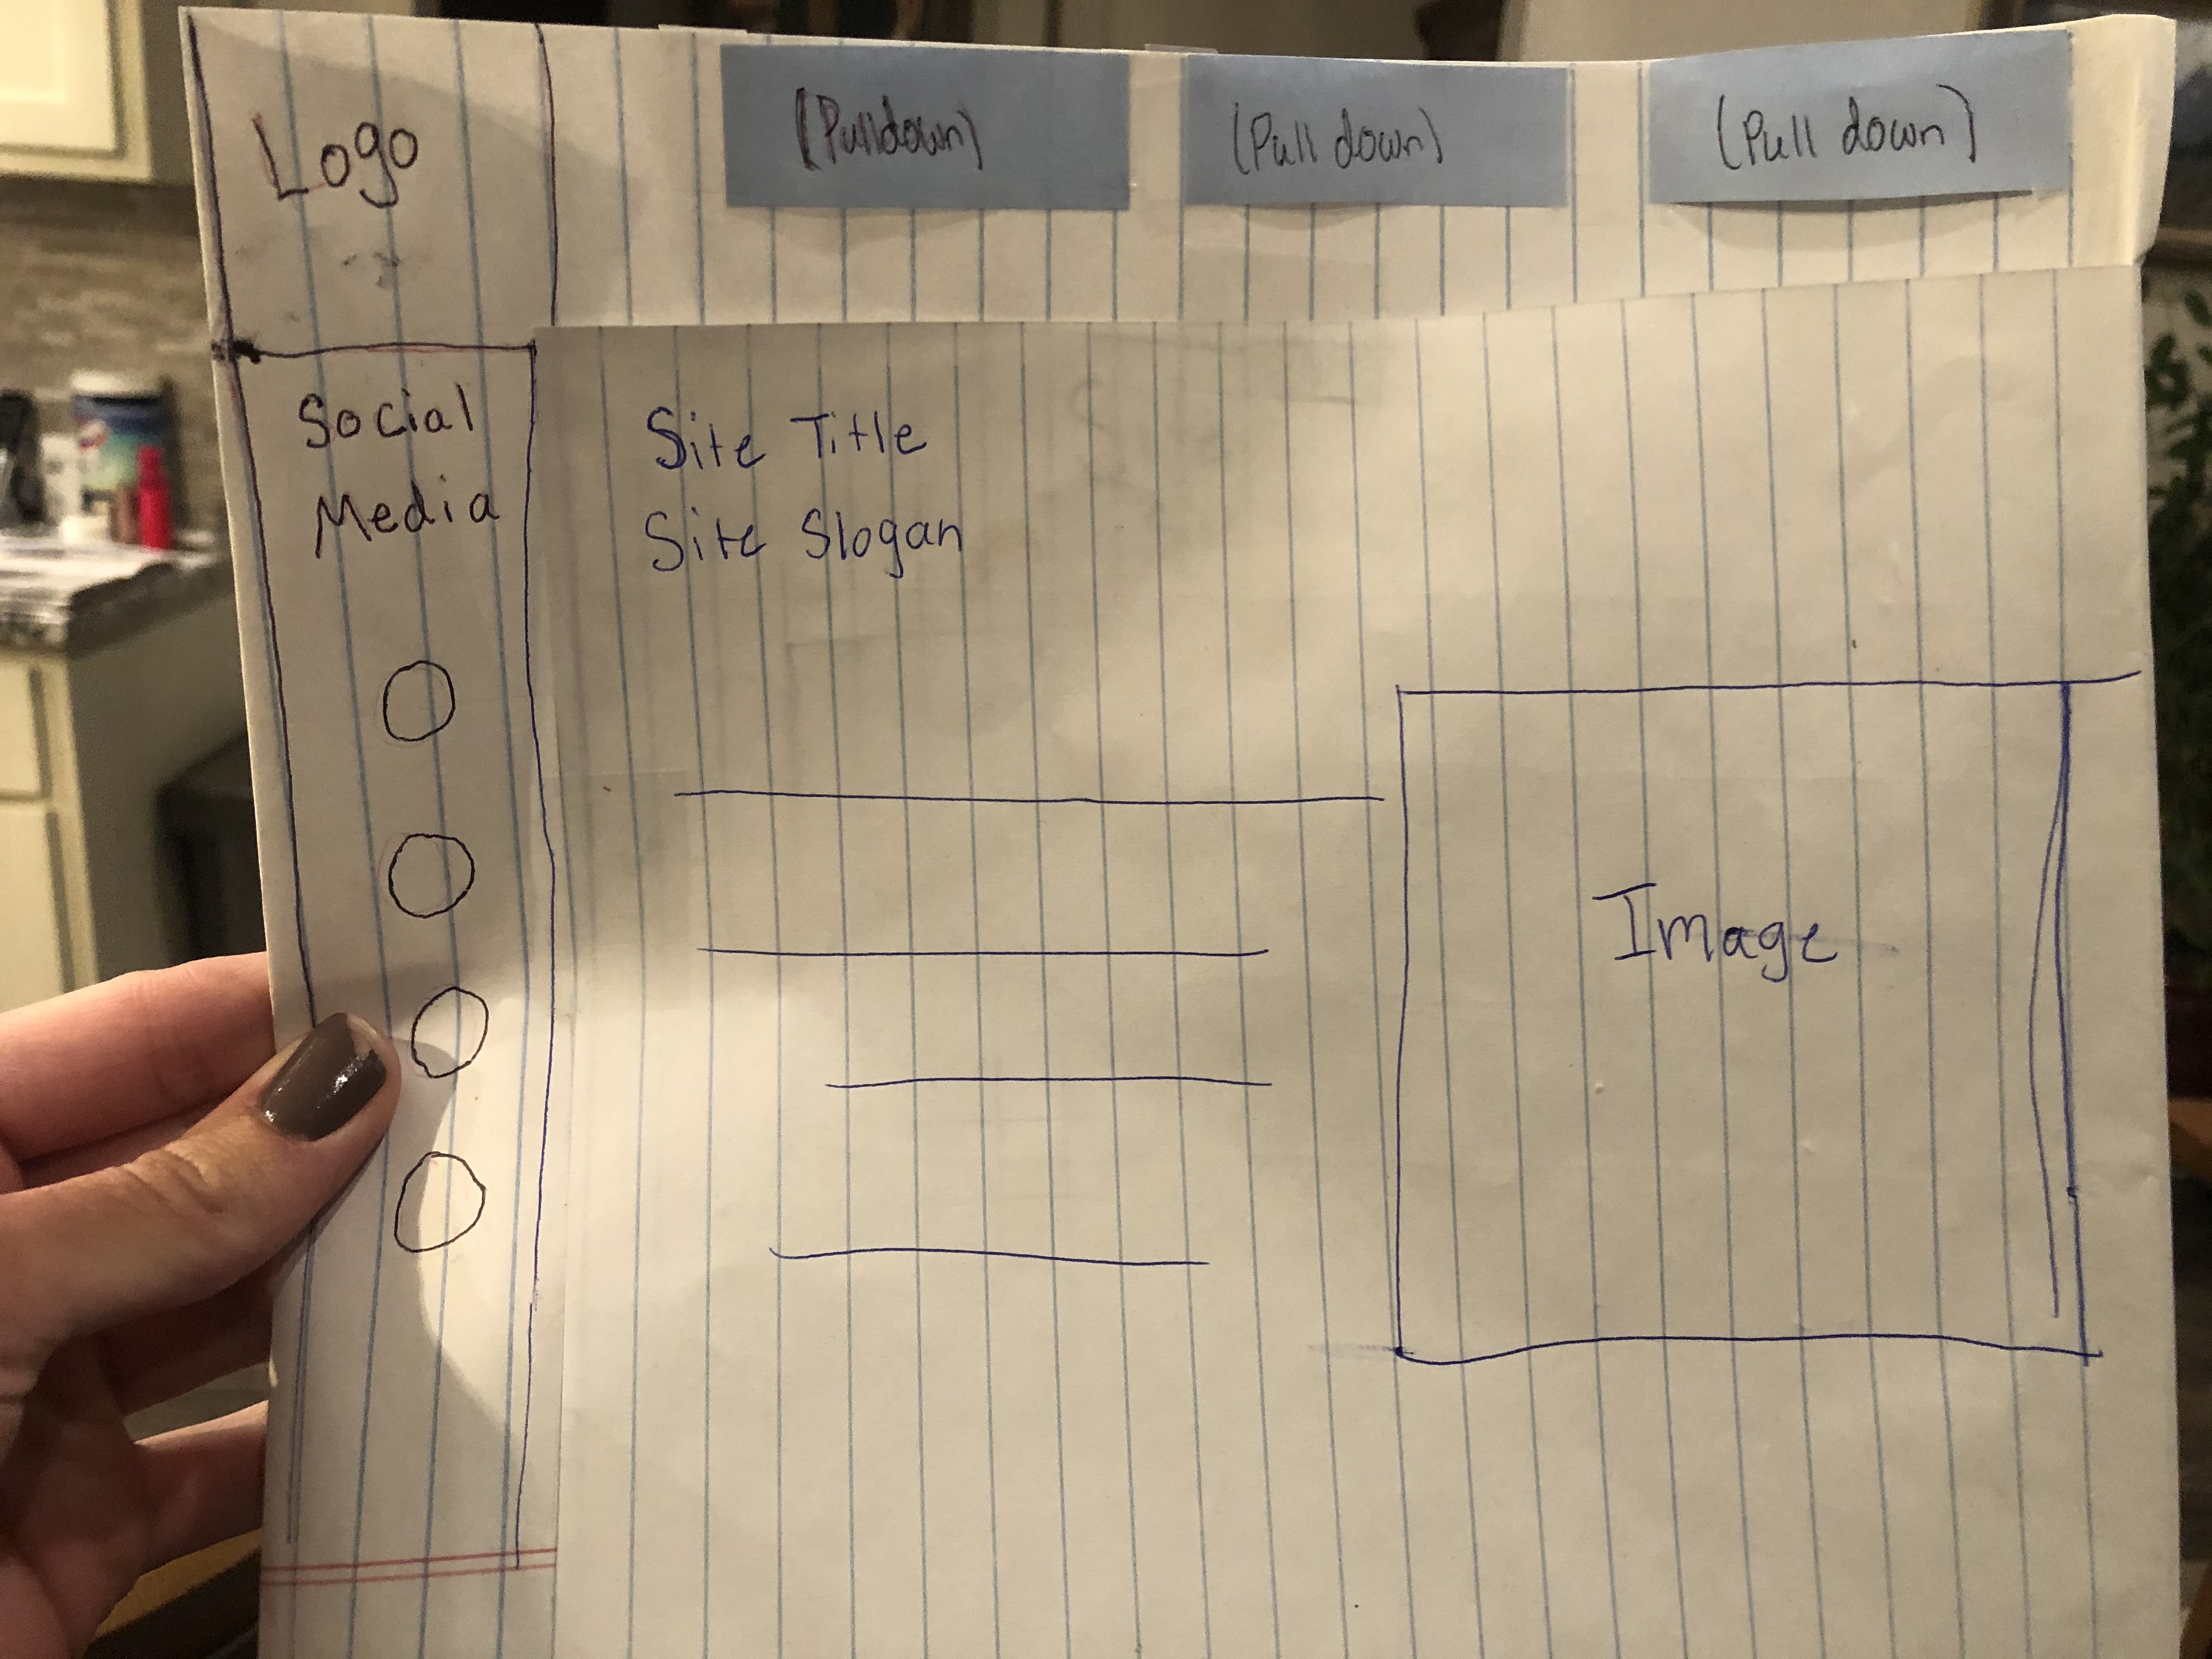 Logo
(Pulldown)
(Pull down)
(Pull down)
Social
Media
Site Title
Site Slogan
Image